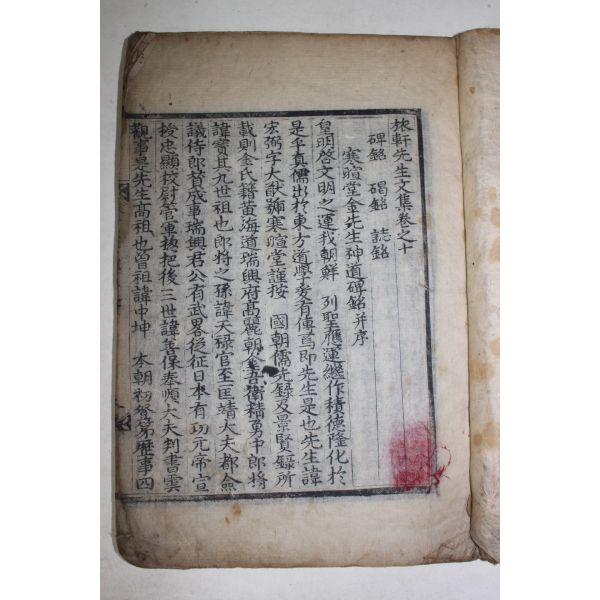 旅軒先生文集卷之十
碑銘 碣銘 誌銘
寒暄堂金先生神道碑銘 幷序
皇明啓文明之運我朝鮮 列聖應運繼作積德隆化於
是乎眞儒出於東方道學爰有傳焉卽先生是也先生諱
宏弼字大猷號寒暄堂謹按 國朝儒先錄及景賢錄所
載則金氏籍黃海道瑞興府高麗朝金吾衛精勇中郞將
諱寶其九世祖也郞將之孫諱天祿官至匡靖大夫都僉
議侍郞贊成事瑞興君公有武畧後征日本有功元帝宣
授忠顯校尉管軍把把後三世諱善保奉順大夫判書雲
觀事是先生高祖也曾祖諱中坤 本朝初登第歷事四